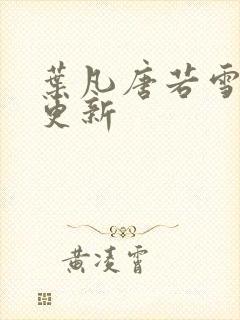 葉凡唐若雪
更新
黄凌霄